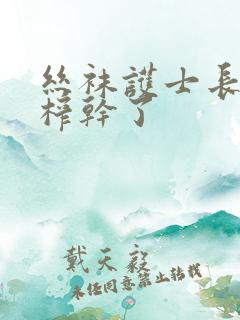 絲袜護士長
榨幹了
戴天毅
未任同意禁止转载